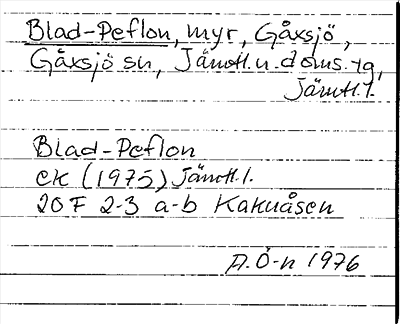 Blad-Peflon, myr, Gåxsjö,
Gåxsjö sn, Jämtl. n. doms.tg,
Jämtl. l.
Blad-Peflon
ek (1975) Jämtl. l.
20F 2-3 a-b Kakuåsen
A.Ö-n 1976